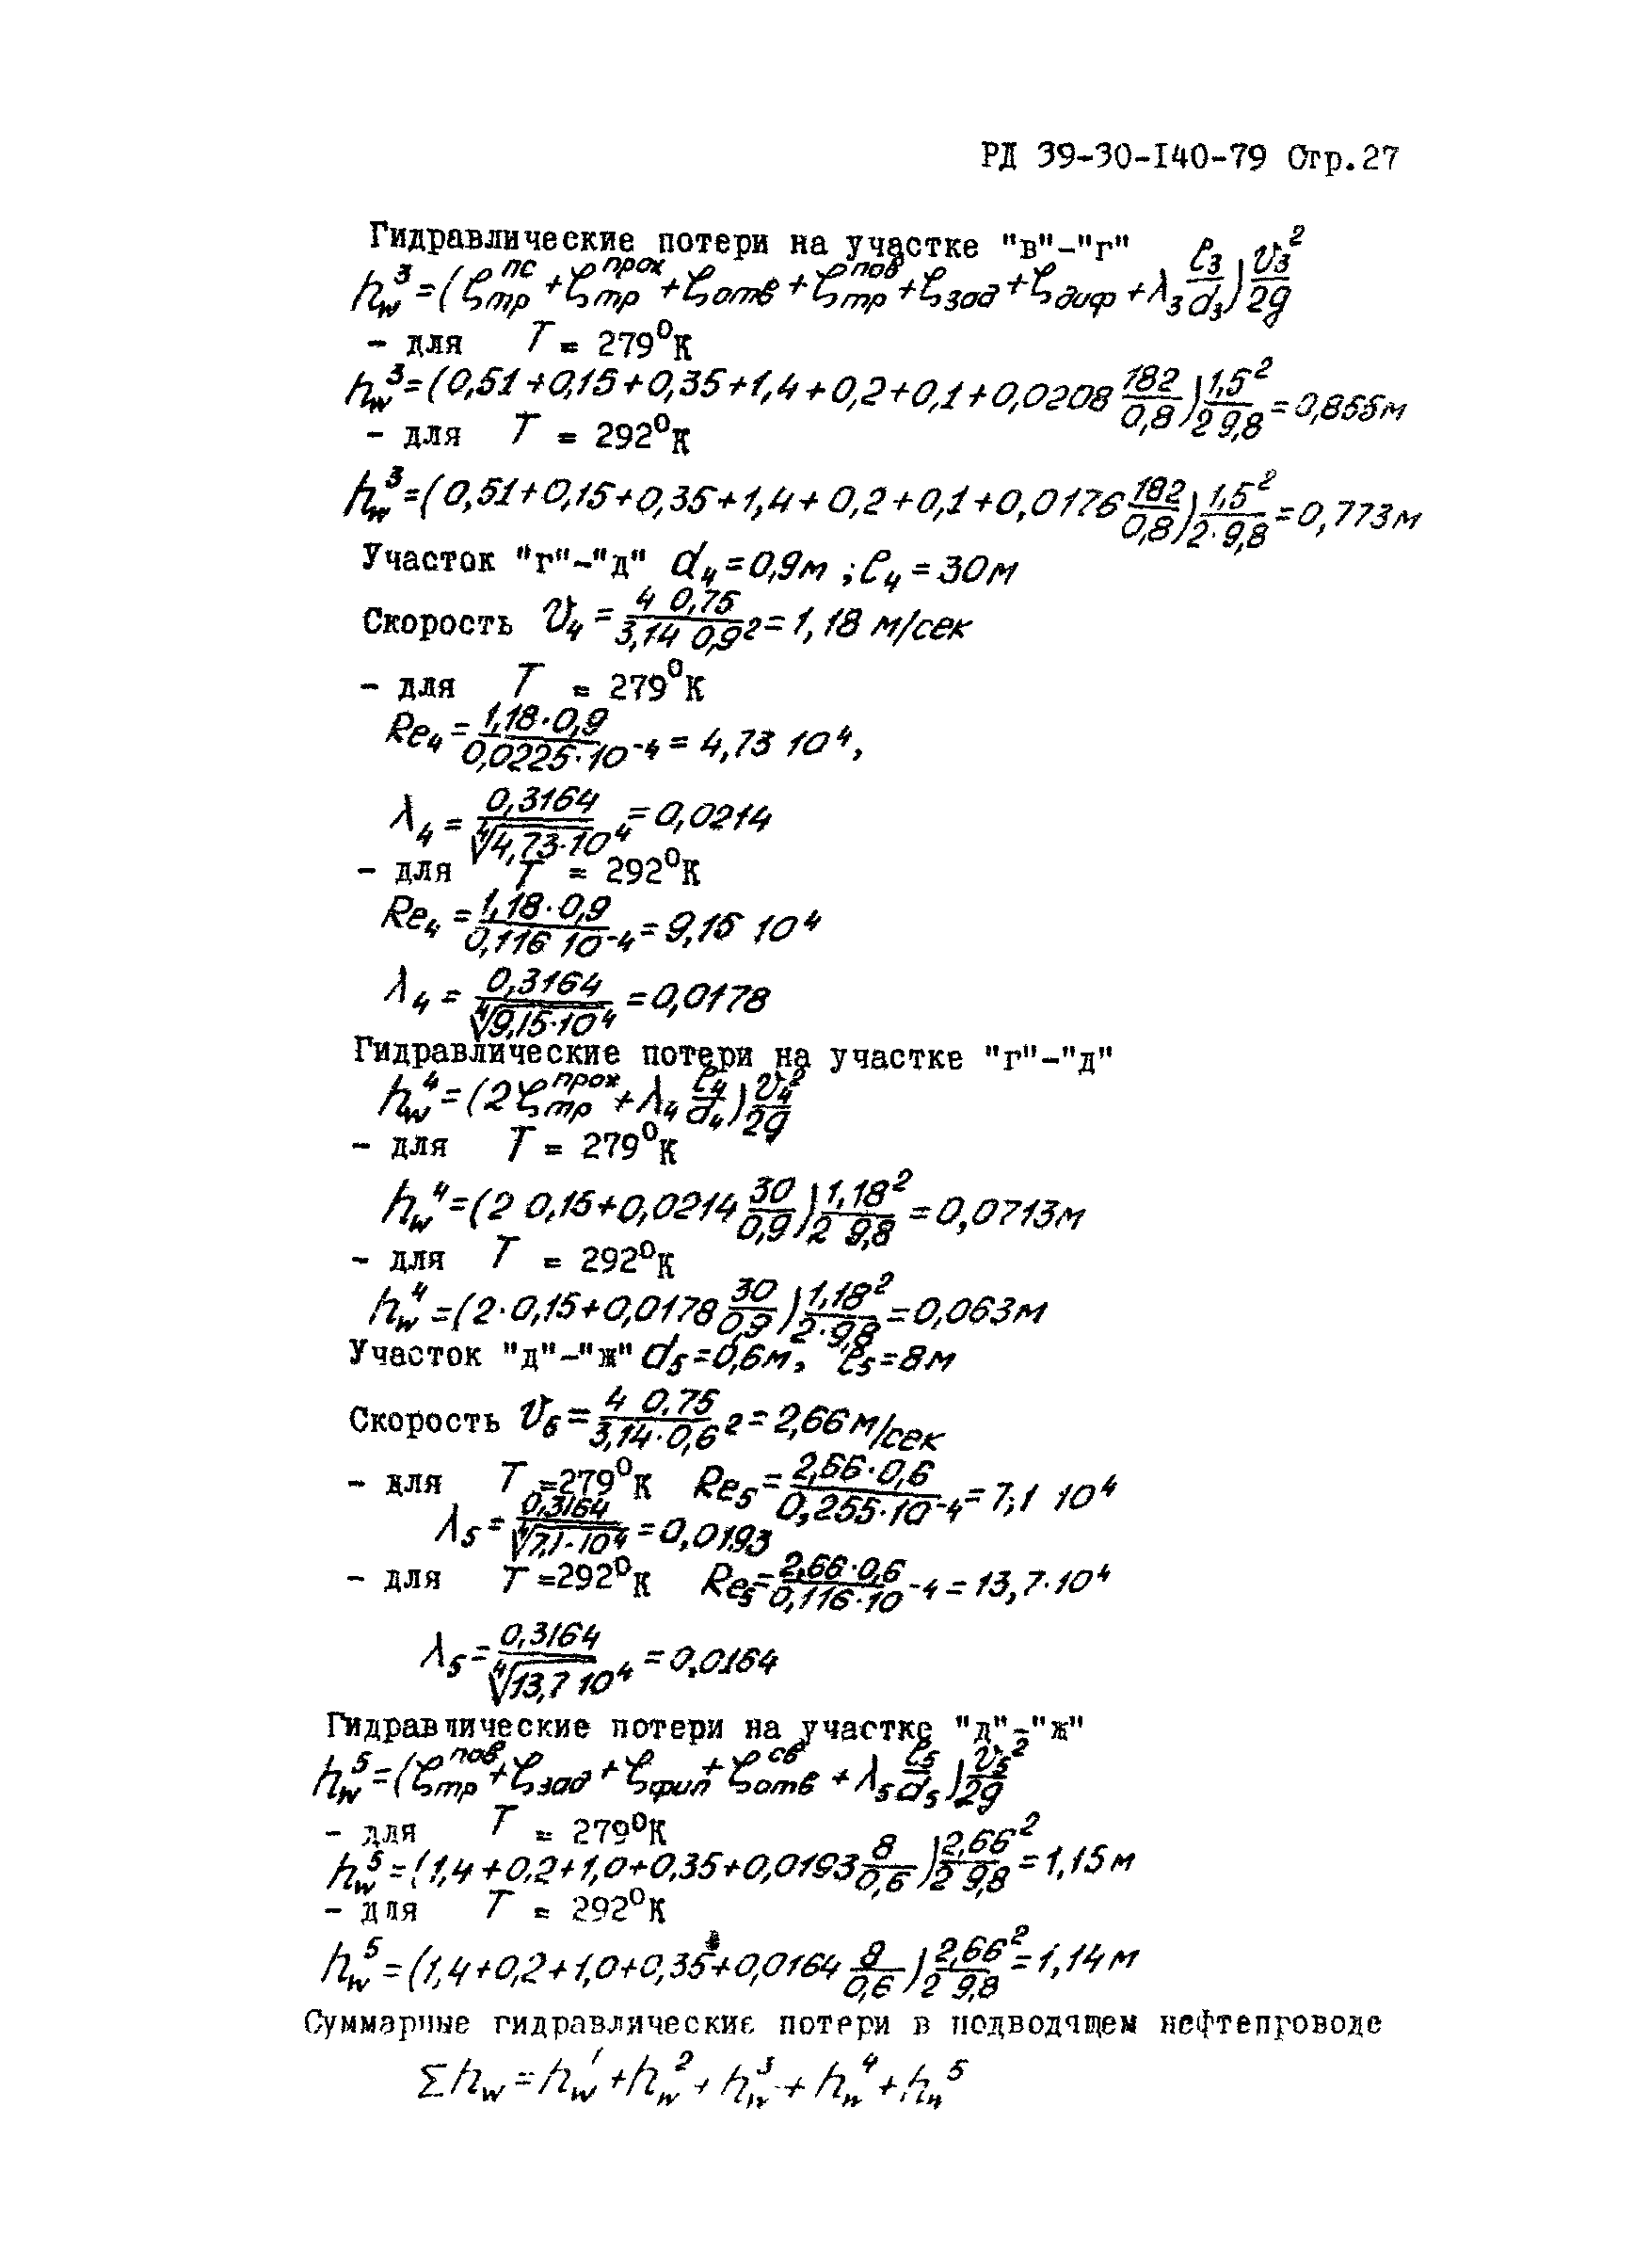 РД 39-30-I40-79 Стр.27
Гидравлические потери на участке "в"-"г"
h_w^3=(ζ_тр^пс+ζ_тр^прох+ζ_отв+ζ_тр^пов+ζ_зад+ζ_диф+λ_3 ℓ_3/d_3) v_3^2/2g
- для T = 279°К
h_w^3=(0,51+0,15+0,35+1,4+0,2+0,1+0,0208 182/0,8) 1,5^2/2 9,8=0,855м
- для T = 292°К
h_w^3=(0,51+0,15+0,35+1,4+0,2+0,1+0,0176 182/0,8) 1,5^2/2·9,8=0,773м
Участок "г"-"д" d_4=0,9м ; ℓ_4=30м
Скорость v_4=4 0,75/3,14 0,9^2=1,18 м/сек
- для T = 279°К
Re_4=1,18·0,9/0,0225·10^-4=4,73 10^4,
λ_4=0,3164/∜4,73·10^4=0,0214
- для T = 292°К
Re_4=1,18·0,9/0,116 10^-4=9,15 10^4
λ_4=0,3164/∜9,15·10^4=0,0178
Гидравлические потери на участке "г"-"д"
h_w^4=(2ζ_тр^прох+λ_4 ℓ_4/d_4) v_4^2/2g
- для T = 279°К
h_w^4=(2 0,15+0,0214 30/0,9) 1,18^2/2 9,8=0,0713м
- для T = 292°К
h_w^4=(2·0,15+0,0178 30/0,9) 1,18^2/2·9,8=0,063м
Участок "д"-"ж" d_5=0,6м, ℓ_5=8м
Скорость v_5=4 0,75/3,14·0,6^2=2,66м/сек
- для T =279°К Re_5=2,66·0,6/0,255·10^-4=7,1 10^4
λ_5=0,3164/∜7,1·10^4=0,0193
- для T =292°К Re_5=2,66·0,6/0,116·10^-4=13,7·10^4
λ_5=0,3164/∜13,7 10^4=0,0164
Гидравлические потери на участке "д"-"ж"
h_w^5=(ζ_тр^пов+ζ_зад+ζ_фил+ζ_отв^св+λ_5 ℓ_5/d_5) v_5^2/2g
- для T = 279°К
h_w^5=(1,4+0,2+1,0+0,35+0,0193 8/0,6) 2,66^2/2 9,8=1,15м
- для T = 292°К
h_w^5=(1,4+0,2+1,0+0,35+0,0164 8/0,6) 2,66^2/2 9,8=1,14м
Суммарные гидравлические потери в подводящем нефтепроводе
Σh_w=h_w^1+h_w^2+h_w^3+h_w^4+h_w^5